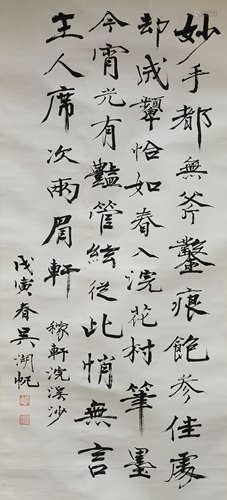 妙手都無斧鑿痕飽參佳處
却成顰恰如春入浣花村筆墨
今宵光有豔管絃從此悄無言
主人席次兩眉軒 稼軒浣溪沙
戊寅春吳湖帆